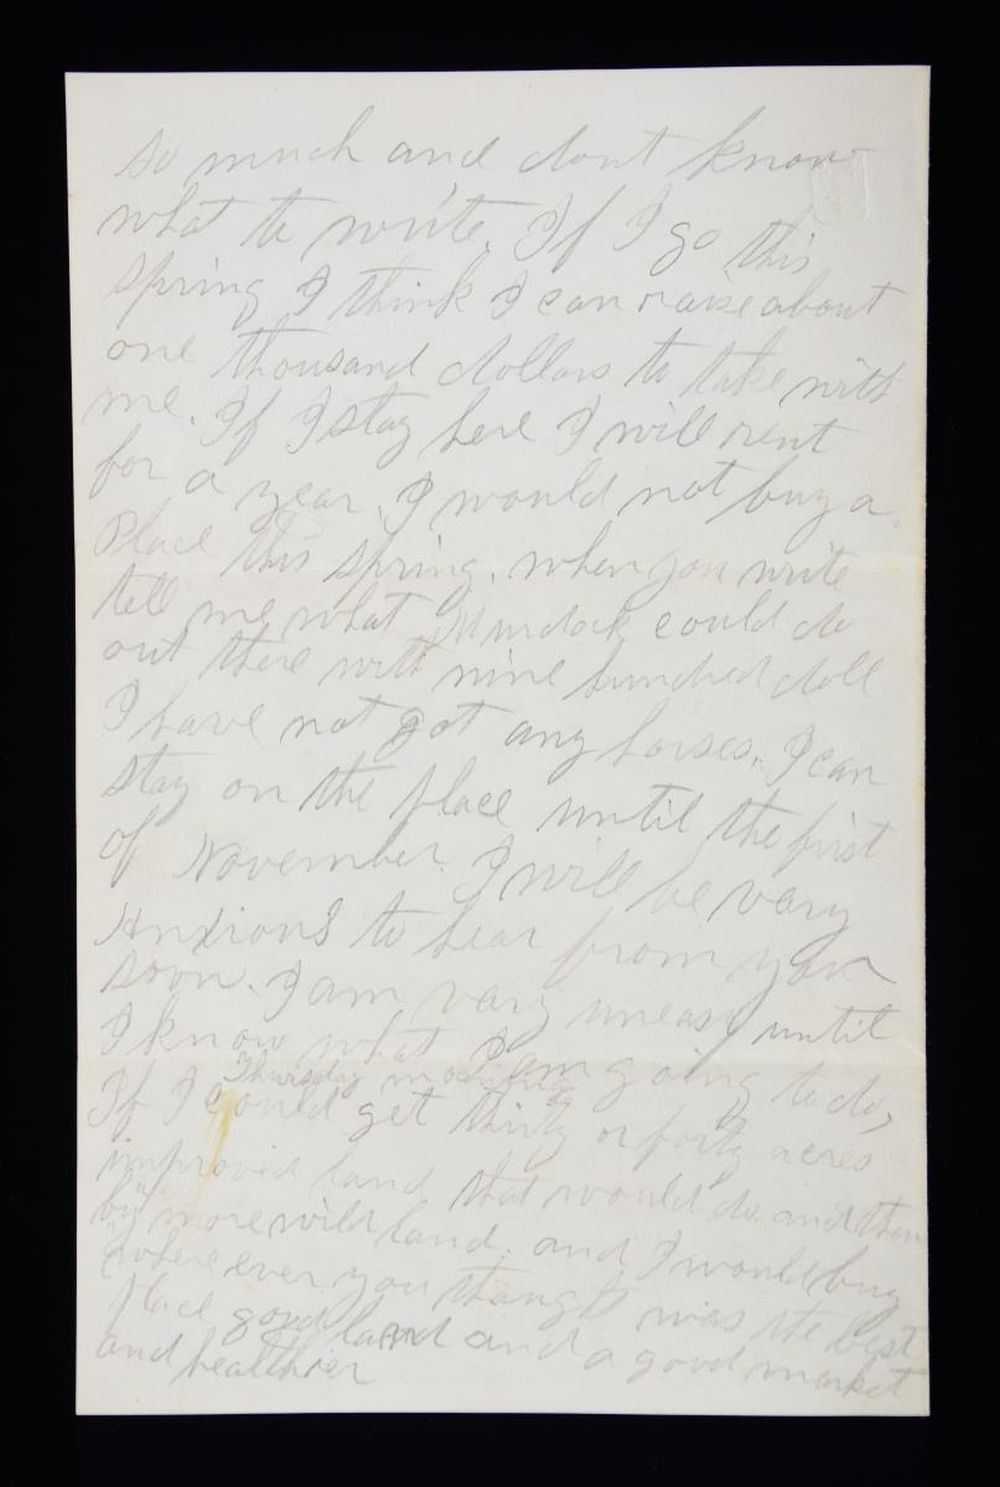 so much and dont know
what to write. If I go this
spring I think I can raise about
one thousand dollars to take with
me. If I stay here I will rent
for a year. I would not buy a
Place this spring. when you write
tell me what Murdock could do
out there with nine hundred doll
I have not got any horses. I can
stay on the place until the first
of November. I will be vary
Anxious to hear from you
soon. I am vary uneasy until
I know what I am going to do,
Thursday morning
If I could get thirty or forty acres
improved land that would do and then
buy more wild land. and I would buy
where ever you thought was the best
place good land and a good market
and healthier